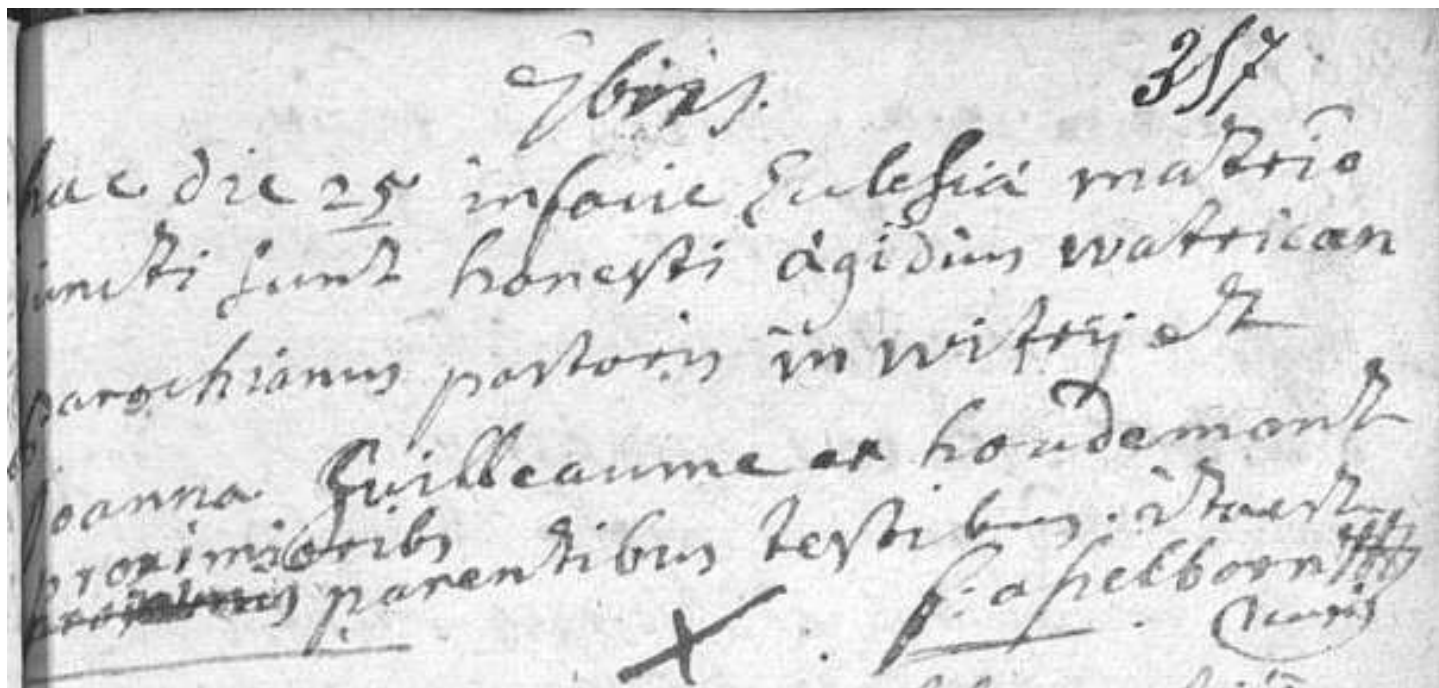 7bris. 357
hac die 25 in facie Eclesia matrio
iuncti sunt honesti ágidius watrican
parochianus pastoris in witrij et
joanna Guilleaume ex houdemont
proximioribs
parentibus testibus. ita est
p: aselborn